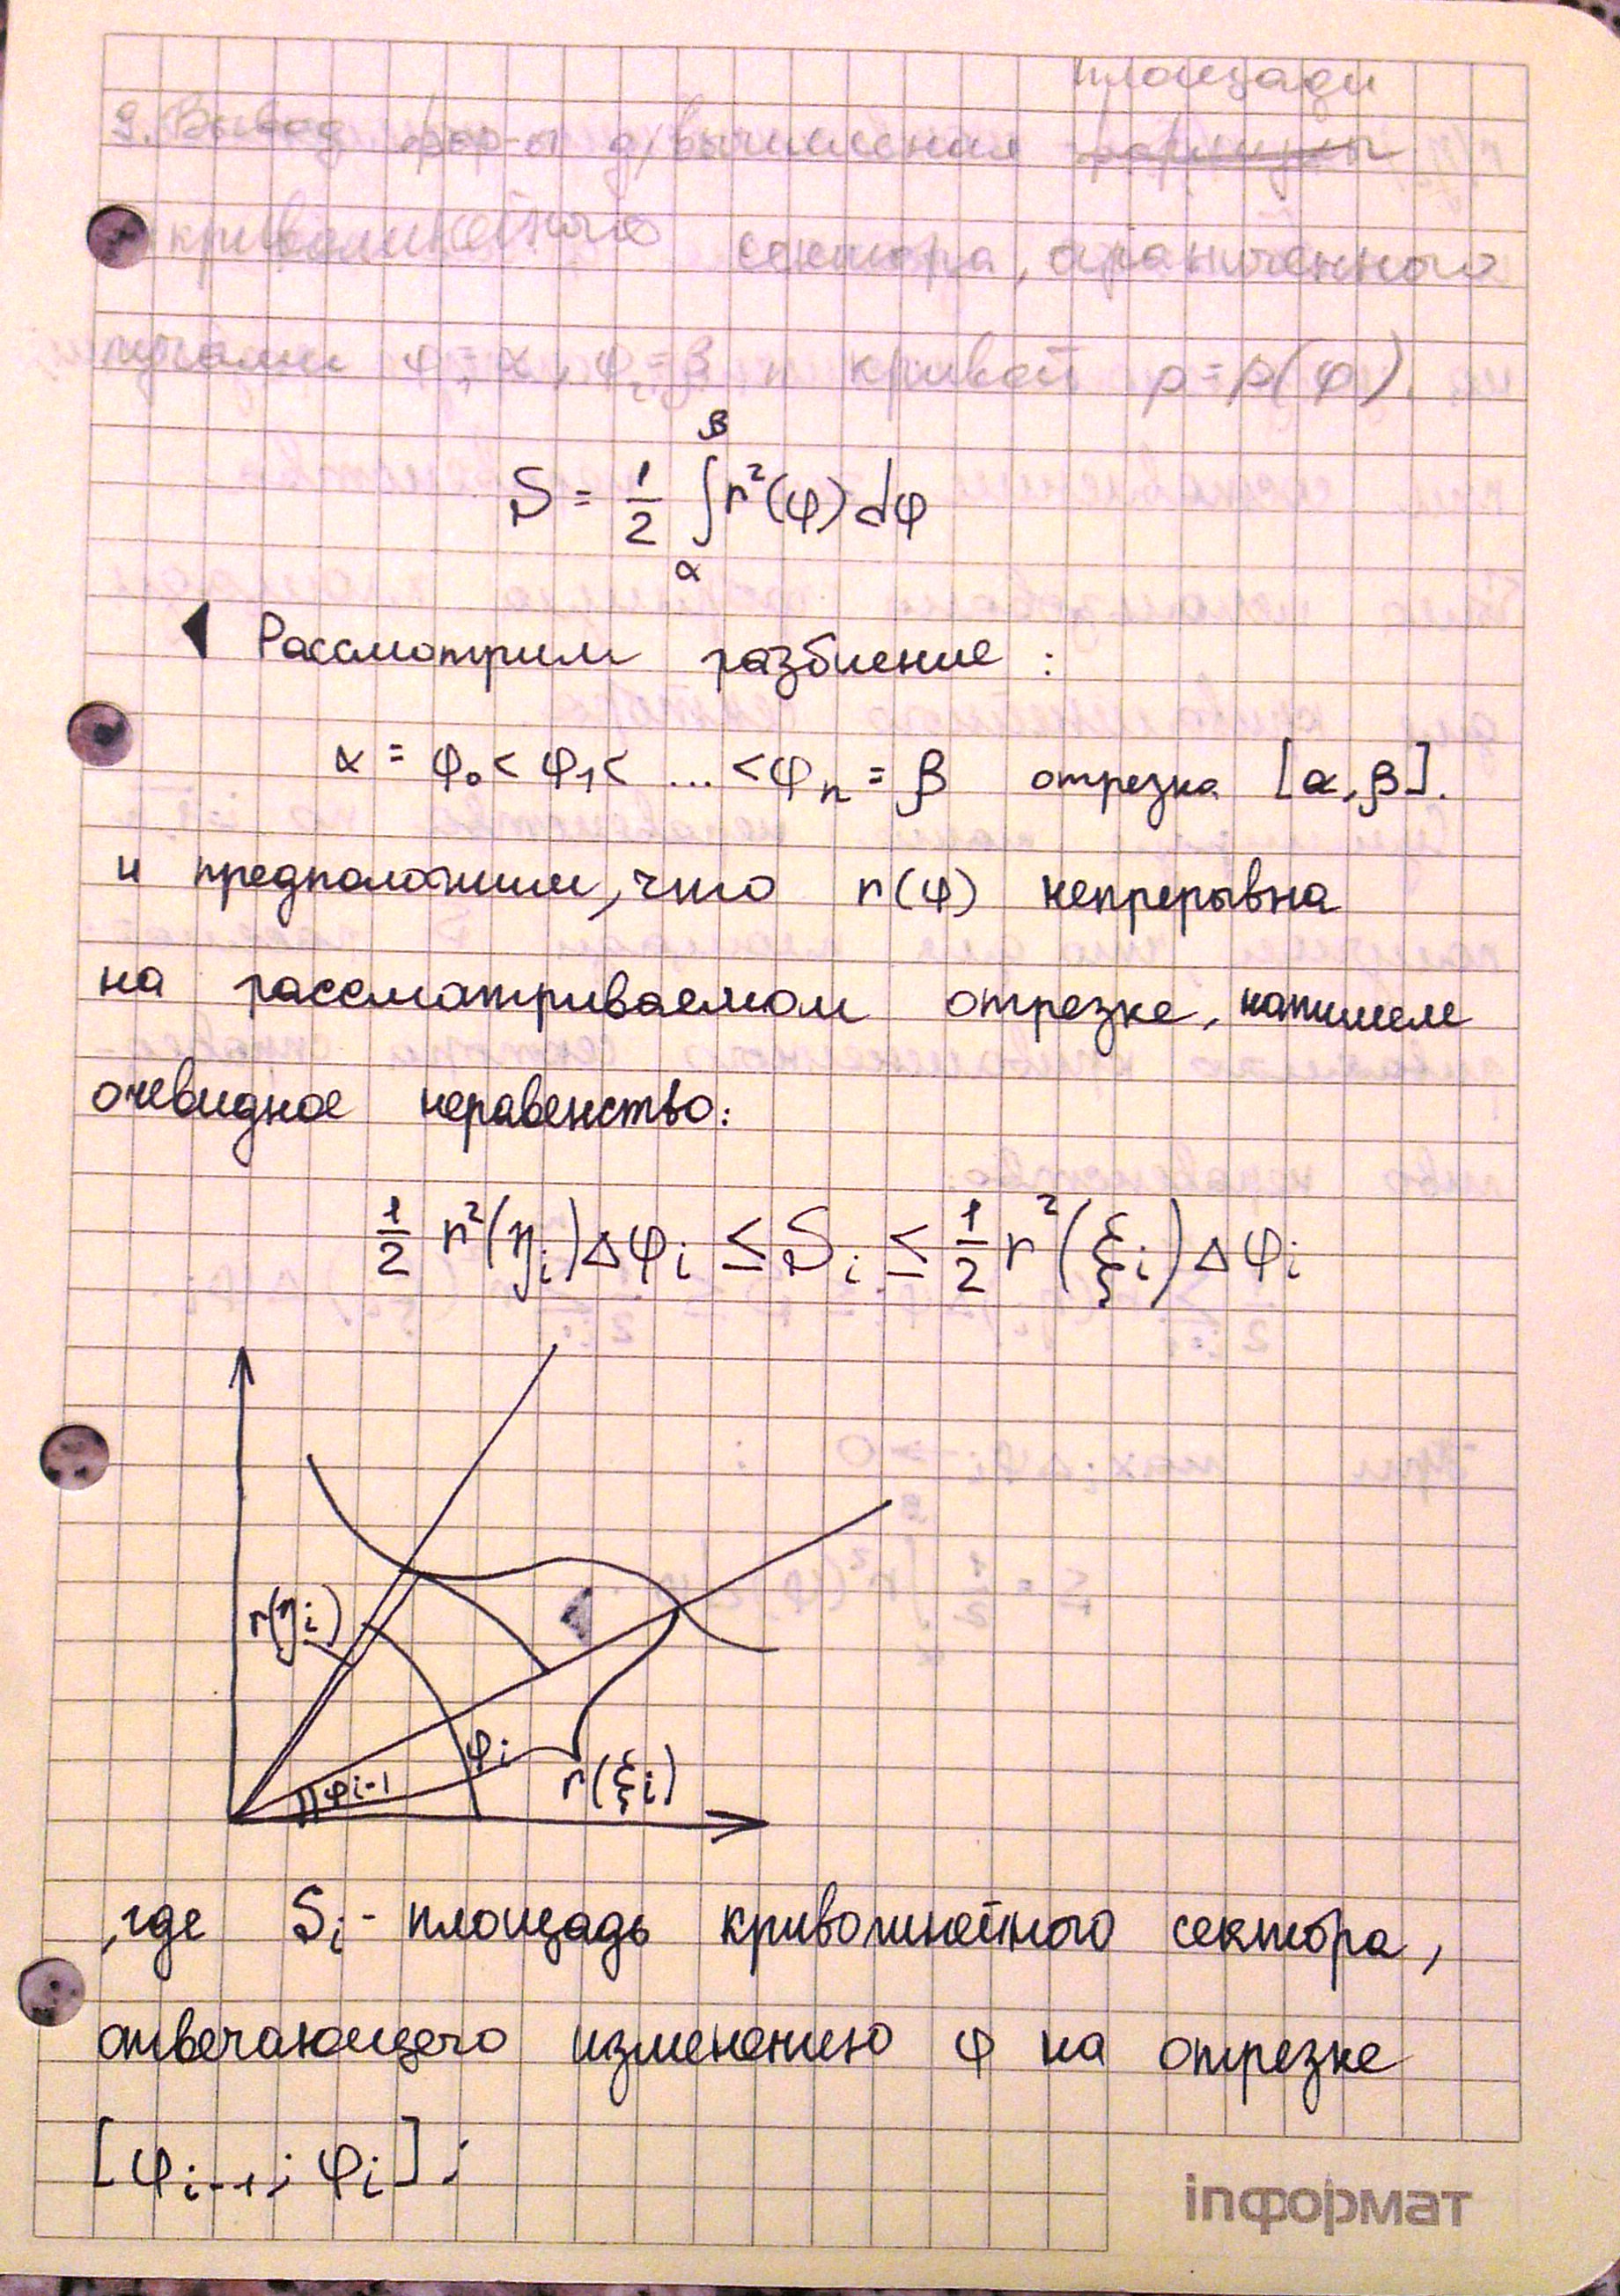 площади
9. Вывод фор-л д/вычисления формулы
криволинейного сектора, ограниченного
лучами φ₁=α, φ₂=β и кривой ρ=ρ(φ).
S = 1/2 ∫_α^β r²(φ)dφ
◀ Рассмотрим разбиение:
α = φ₀ < φ₁ < ... < φₙ = β отрезка [α, β].
и предположим, что r(φ) непрерывна
на рассматриваемом отрезке, напишем
очевидное неравенство:
1/2 r²(ηᵢ)Δφᵢ ≤ Sᵢ ≤ 1/2 r²(ξᵢ)Δφᵢ
r(ηᵢ)
φᵢ
φᵢ₋₁
r(ξᵢ)
,где Sᵢ - площадь криволинейного сектора,
отвечающего изменению φ на отрезке
[φᵢ₋₁; φᵢ].
inформат